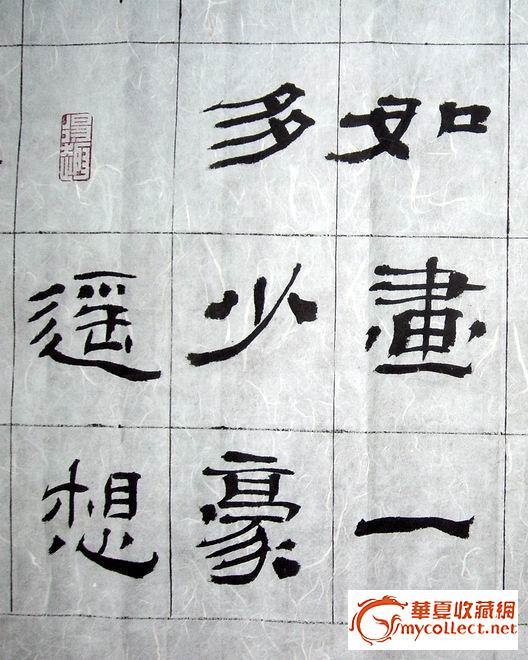 如畫一
多少豪
遥想
華夏收藏網
mycollect.net